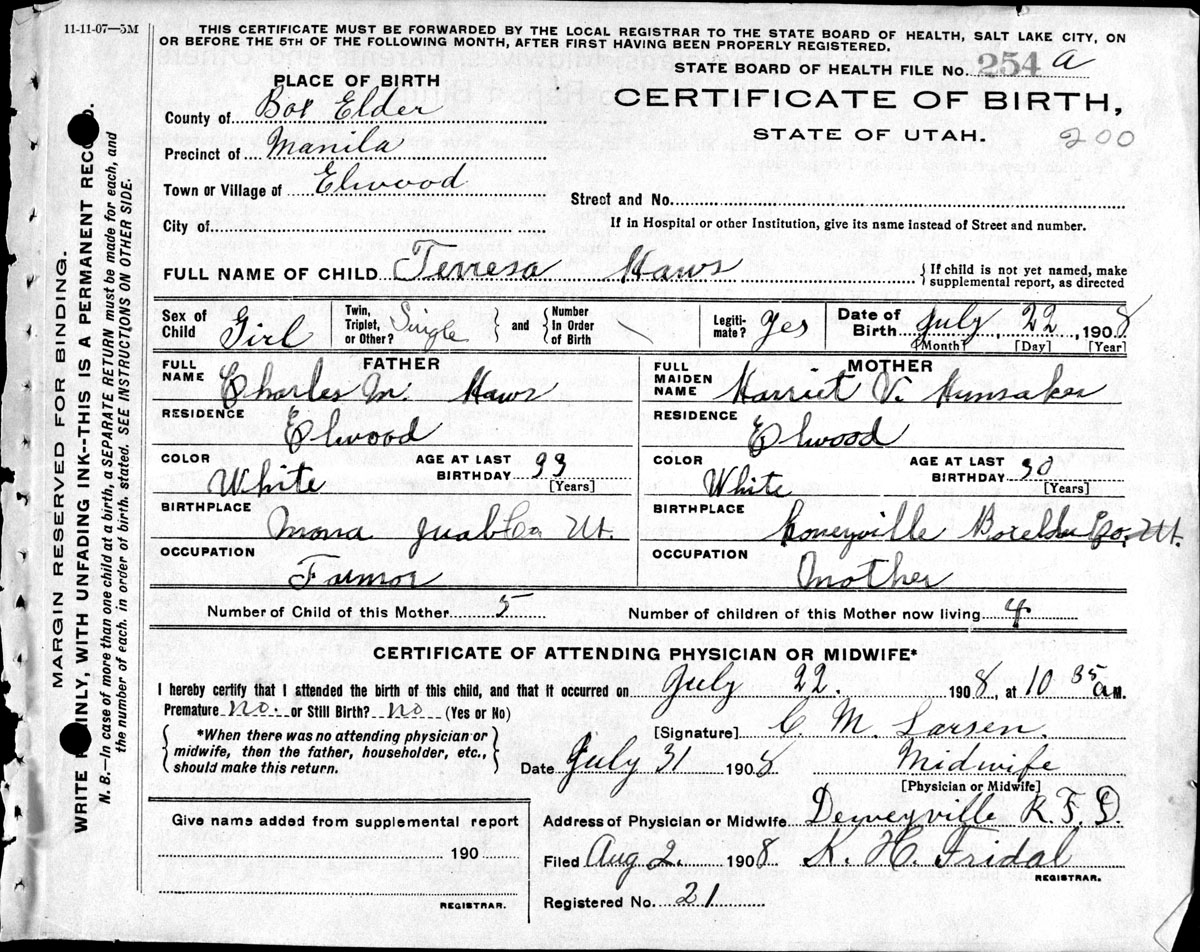 11-11-07—5M
THIS CERTIFICATE MUST BE FORWARDED BY THE LOCAL REGISTRAR TO THE STATE BOARD OF HEALTH, SALT LAKE CITY, ON
OR BEFORE THE 5TH OF THE FOLLOWING MONTH, AFTER FIRST HAVING BEEN PROPERLY REGISTERED.
STATE BOARD OF HEALTH FILE No. 254 a
PLACE OF BIRTH
CERTIFICATE OF BIRTH,
STATE OF UTAH.
200
County of Box Elder
Precinct of Manila
Town or Village of Elwood
Street and No.
City of
If in Hospital or other Institution, give its name instead of Street and number.
FULL NAME OF CHILD Terresa Haws
{If child is not yet named, make
supplemental report, as directed
Sex of Child Girl
Twin, Triplet, or Other? Single } and { Number In Order of Birth \
Legitimate? Yes
Date of Birth July, 22, 1908
[Month] [Day] [Year]
FATHER
FULL NAME Charles M. Haws
RESIDENCE Elwood
COLOR White
AGE AT LAST BIRTHDAY 33 [Years]
BIRTHPLACE Mona Juab Co Ut.
OCCUPATION Farmor
MOTHER
FULL MAIDEN NAME Harriet V. Hunsaker
RESIDENCE Elwood
COLOR White
AGE AT LAST BIRTHDAY 30 [Years]
BIRTHPLACE Honeyville Boxelder Co. Ut.
OCCUPATION Mother
Number of Child of this Mother 5
Number of children of this Mother now living 4
CERTIFICATE OF ATTENDING PHYSICIAN OR MIDWIFE*
I hereby certify that I attended the birth of this child, and that it occurred on July 22. 1908, at 10 35 a M.
Premature no. or Still Birth? no (Yes or No)
{*When there was no attending physician or
midwife, then the father, householder, etc.,
should make this return.}
[Signature] C. M. Larsen.
Date July 31 1908 Midwife
[Physician or Midwife]
Address of Physician or Midwife Deweyville R. F. D.
Filed Aug 2. 1908 K. H. Fridal
REGISTRAR.
Registered No. 21
Give name added from supplemental report
190
REGISTRAR.
MARGIN RESERVED FOR BINDING.
WRITE PLAINLY, WITH UNFADING INK--THIS IS A PERMANENT RECORD.
N. B.—In case of more than one child at a birth, a SEPARATE RETURN must be made for each, and
the number of each, in order of birth, stated. SEE INSTRUCTIONS ON OTHER SIDE.